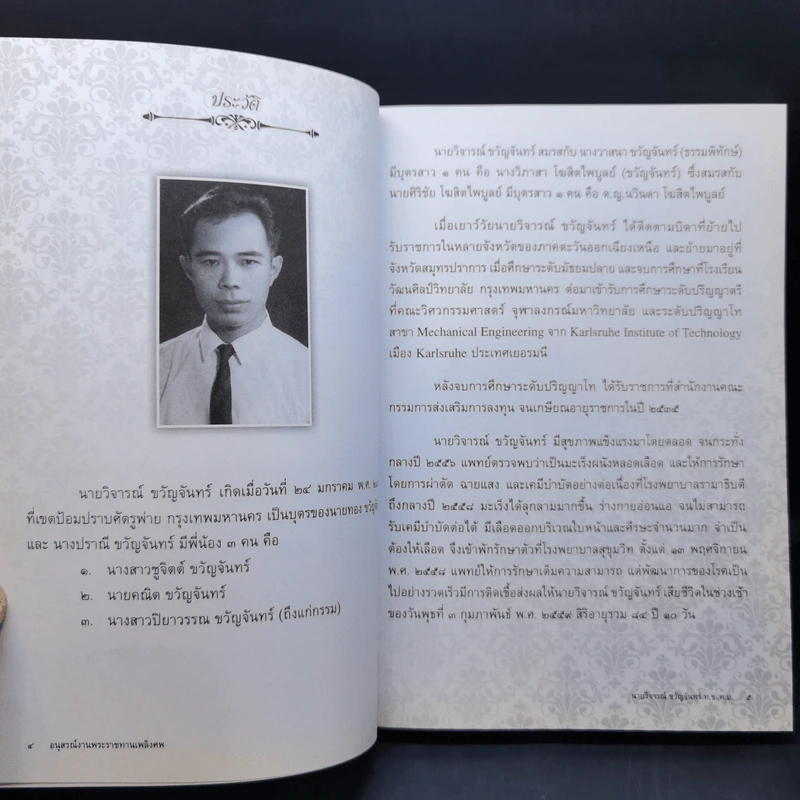 ประวัติ
นายวิจารณ์ ขวัญจันทร์ เกิดเมื่อวันที่ ๒๔ มกราคม พ.ศ.
ที่เขตป้อมปราบศัตรูพ่าย กรุงเทพมหานคร เป็นบุตรของนายทอง
และ นางปราณี ขวัญจันทร์ มีพี่น้อง ๓ คน คือ
๑. นางสาวชูจิตต์ ขวัญจันทร์
๒. นายคณิต ขวัญจันทร์
๓. นางสาวปิยาวรรณ ขวัญจันทร์ (ถึงแก่กรรม)
๔ อนุสรณ์งานพระราชทานเพลิงศพ
นายวิจารณ์ ขวัญจันทร์ สมรสกับ นางวาสนา ขวัญจันทร์ (ธรรมพิทักษ์)
มีบุตรสาว ๑ คน คือ นางวิภาสา โฆสิตไพบูลย์ (ขวัญจันทร์) ซึ่งสมรสกับ
นายศิริชัย โฆสิตไพบูลย์ มีบุตรสาว ๑ คน คือ ด.ญ.นวินดา โฆสิตไพบูลย์
เมื่อเยาว์วัยนายวิจารณ์ ขวัญจันทร์ ได้ติดตามบิดาที่ย้ายไป
รับราชการในหลายจังหวัดของภาคตะวันออกเฉียงเหนือ และย้ายมาอยู่ที่
จังหวัดสมุทรปราการ เมื่อศึกษาระดับมัธยมปลาย และจบการศึกษาที่โรงเรียน
วัฒนศิลป์วิทยาลัย กรุงเทพมหานคร ต่อมาเข้ารับการศึกษาระดับปริญญาตรี
ที่คณะวิศวกรรมศาสตร์ จุฬาลงกรณ์มหาวิทยาลัย และระดับปริญญาโท
สาขา Mechanical Engineering จาก Karlsruhe Institute of Technology
เมือง Karlsruhe ประเทศเยอรมนี
หลังจบการศึกษาระดับปริญญาโท ได้รับราชการที่สำนักงานคณะ
กรรมการส่งเสริมการลงทุน จนเกษียณอายุราชการในปี ๒๕๓๕
นายวิจารณ์ ขวัญจันทร์ มีสุขภาพแข็งแรงมาโดยตลอด จนกระทั่ง
กลางปี ๒๕๕๖ แพทย์ตรวจพบว่าเป็นมะเร็งผนังหลอดเลือด และให้การรักษา
โดยการผ่าตัด ฉายแสง และเคมีบำบัดอย่างต่อเนื่องที่โรงพยาบาลรามาธิบดี
ถึงกลางปี ๒๕๕๘ มะเร็งได้ลุกลามมากขึ้น ร่างกายอ่อนแอ จนไม่สามารถ
รับเคมีบำบัดต่อได้ มีเลือดออกบริเวณใบหน้าและศีรษะจำนวนมาก จำเป็น
ต้องให้เลือด จึงเข้าพักรักษาตัวที่โรงพยาบาลสุขุมวิท ตั้งแต่ ๑๓ พฤศจิกายน
พ.ศ. ๒๕๕๘ แพทย์ให้การรักษาเต็มความสามารถ แต่พัฒนาการของโรคเป็น
ไปอย่างรวดเร็วมีการติดเชื้อส่งผลให้นายวิจารณ์ ขวัญจันทร์ เสียชีวิตในช่วงเช้า
ของวันพุธที่ ๓ กุมภาพันธ์ พ.ศ. ๒๕๕๙ สิริอายุรวม ๘๔ ปี ๑๐ วัน
นายวิจารณ์ ขวัญจันทร์ ท.ช.,ท.ม. ๕